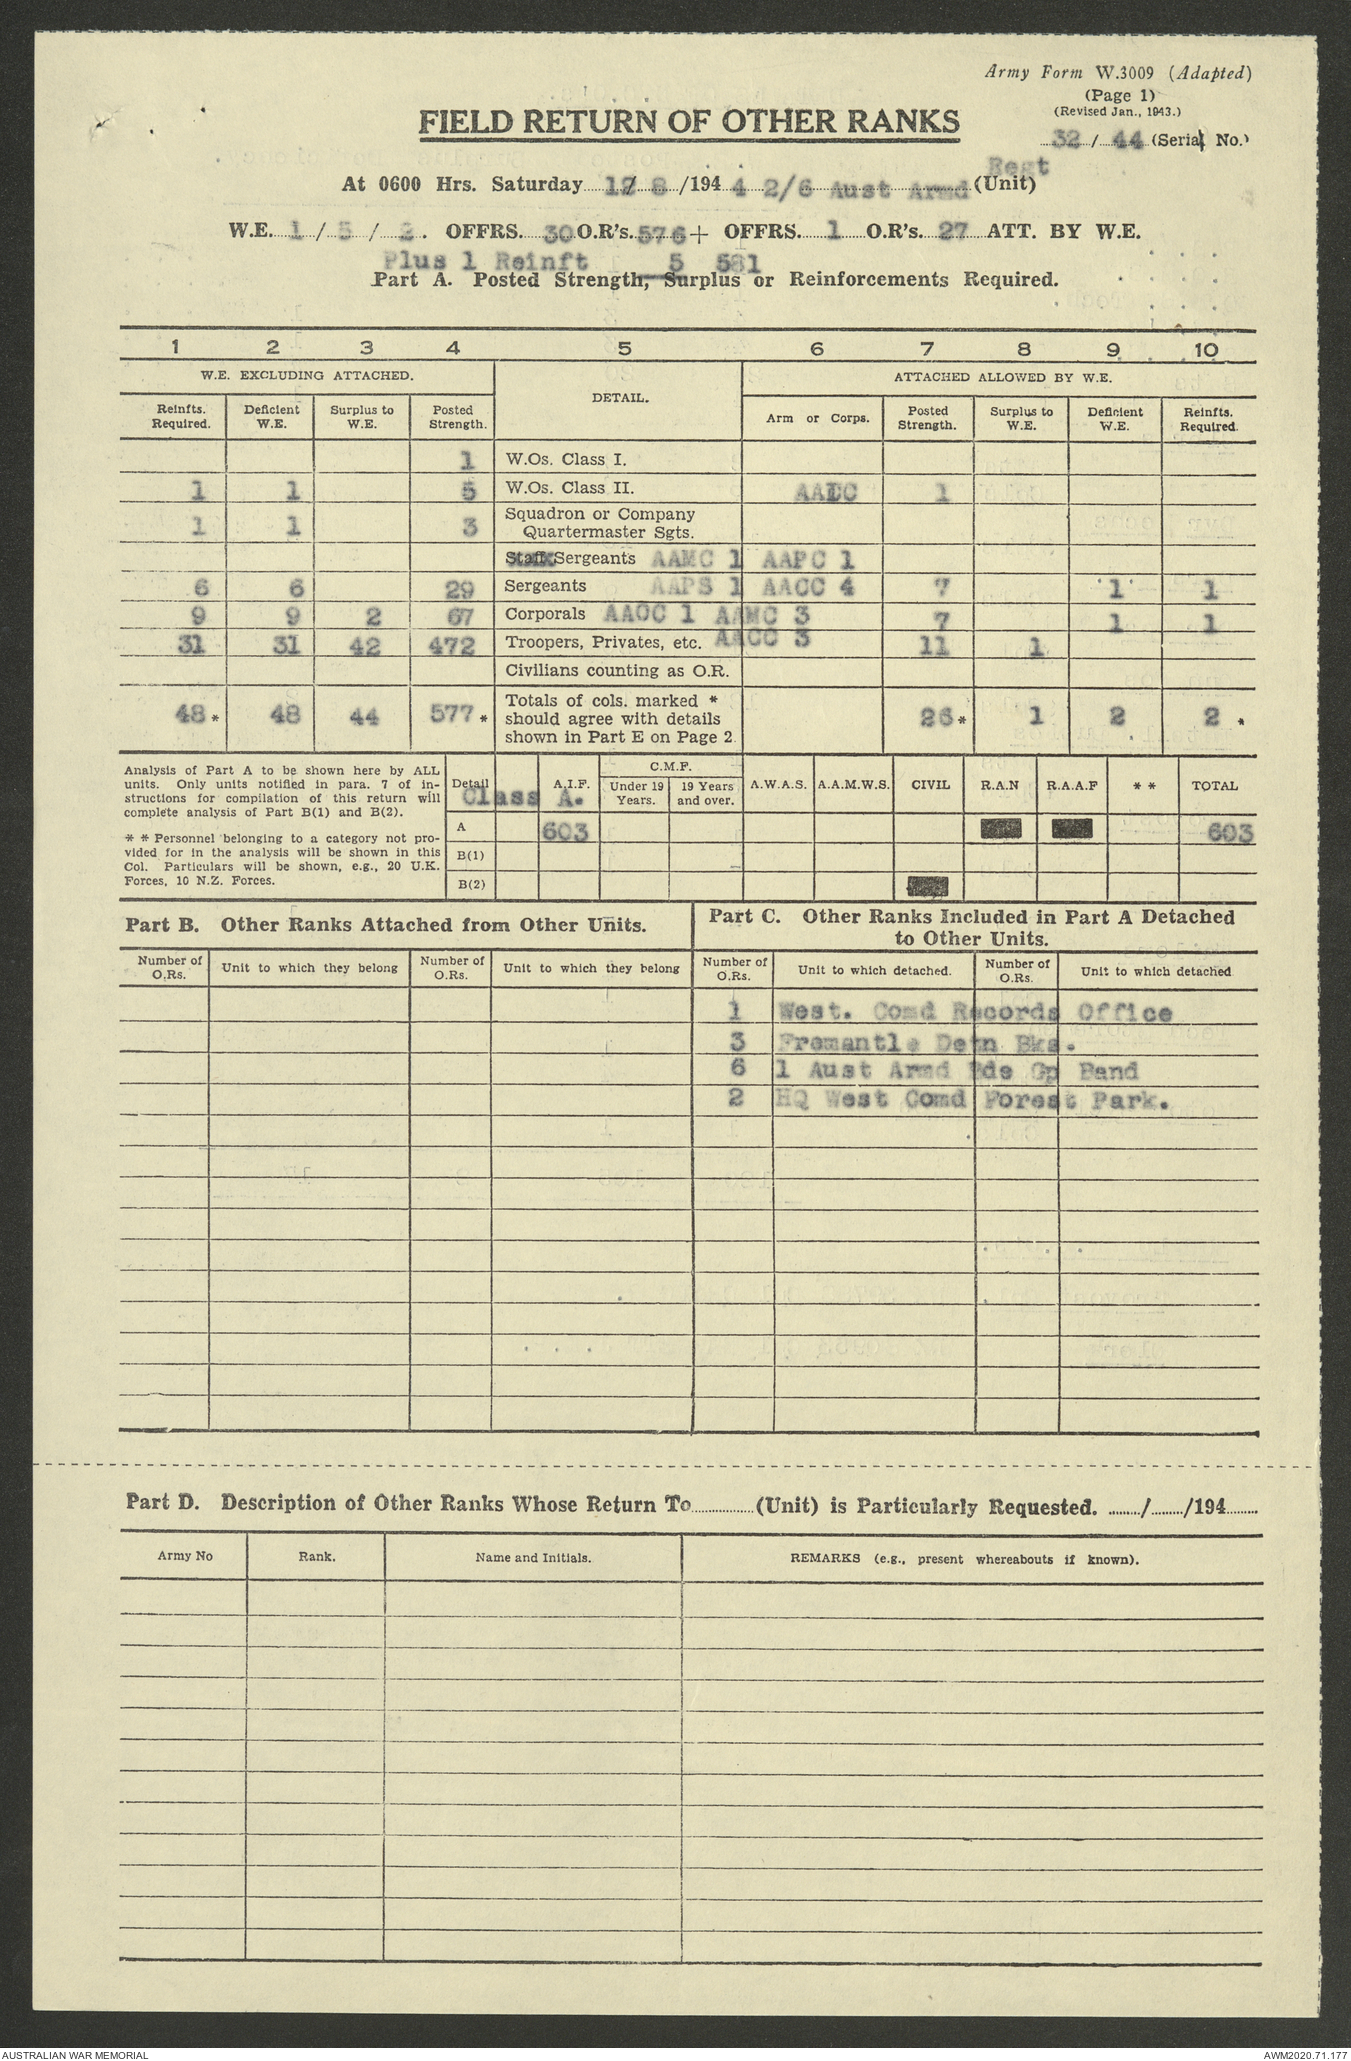 Army Form W.3009 (Adapted)
(Page 1)
(Revised Jan., 1943.)
FIELD RETURN OF OTHER RANKS
32 / 44 (Serial No.)
Regt
At 0600 Hrs. Saturday 12/ 8 /194 4 2/6 Aust Armd (Unit)
W.E. 1 / 5 / 2. OFFRS. 30 O.R's. 576 + OFFRS. 1 O.R's. 27 ATT. BY W.E.
Plus 1 Reinft 5 581
Part A. Posted Strength, Surplus or Reinforcements Required.
1 2 3 4 5 6 7 8 9 10
W.E. EXCLUDING ATTACHED. DETAIL. ATTACHED ALLOWED BY W.E.
Reinfts. Required. Deficient W.E. Surplus to W.E. Posted Strength. Arm or Corps. Posted Strength. Surplus to W.E. Deficient W.E. Reinfts. Required.
1 W.Os. Class I.
1 1 5 W.Os. Class II. AAEC 1
1 1 3 Squadron or Company
Quartermaster Sgts.
Staff Sergeants AAMC 1 AAPC 1
6 6 29 Sergeants AAPS 1 AACC 4 7 1 1
9 9 2 67 Corporals AAOC 1 AAMC 3 7 1 1
31 31 42 472 Troopers, Privates, etc. AACC 3 11 1
Civilians counting as O.R.
48* 48 44 577* Totals of cols. marked *
should agree with details
shown in Part E on Page 2. 26* 1 2 2 *
Analysis of Part A to be shown here by ALL
units. Only units notified in para. 7 of in-
structions for compilation of this return will
complete analysis of Part B(1) and B(2).
* * Personnel belonging to a category not pro-
vided for in the analysis will be shown in this
Col. Particulars will be shown, e.g., 20 U.K.
Forces, 10 N.Z. Forces.
Detail A.I.F. C.M.F. Under 19 Years. 19 Years and over. A.W.A.S. A.A.M.W.S. CIVIL R.A.N R.A.A.F * * TOTAL
Class A.
A 603 603
B(1)
B(2)
Part B. Other Ranks Attached from Other Units.
Part C. Other Ranks Included in Part A Detached
to Other Units.
Number of O.Rs. Unit to which they belong Number of O.Rs. Unit to which they belong Number of O.Rs. Unit to which detached. Number of O.Rs. Unit to which detached
1 West. Comd Records Office
3 Fremantle Detn Bks.
6 1 Aust Armd Bde Gp Band
2 HQ West Comd Forest Park.
Part D. Description of Other Ranks Whose Return To............(Unit) is Particularly Requested. ......../......../194........
Army No Rank. Name and Initials. REMARKS (e.g., present whereabouts if known).
AUSTRALIAN WAR MEMORIAL AWM2020.71.177